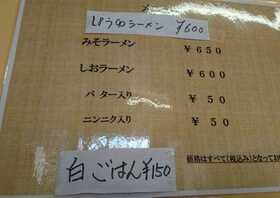 しょうゆラーメン ¥600
みそラーメン ¥650
しおラーメン ¥600
バター入り ¥50
ニンニク入り ¥50
価格はすべて(税込み)となってお
白ごはん¥150